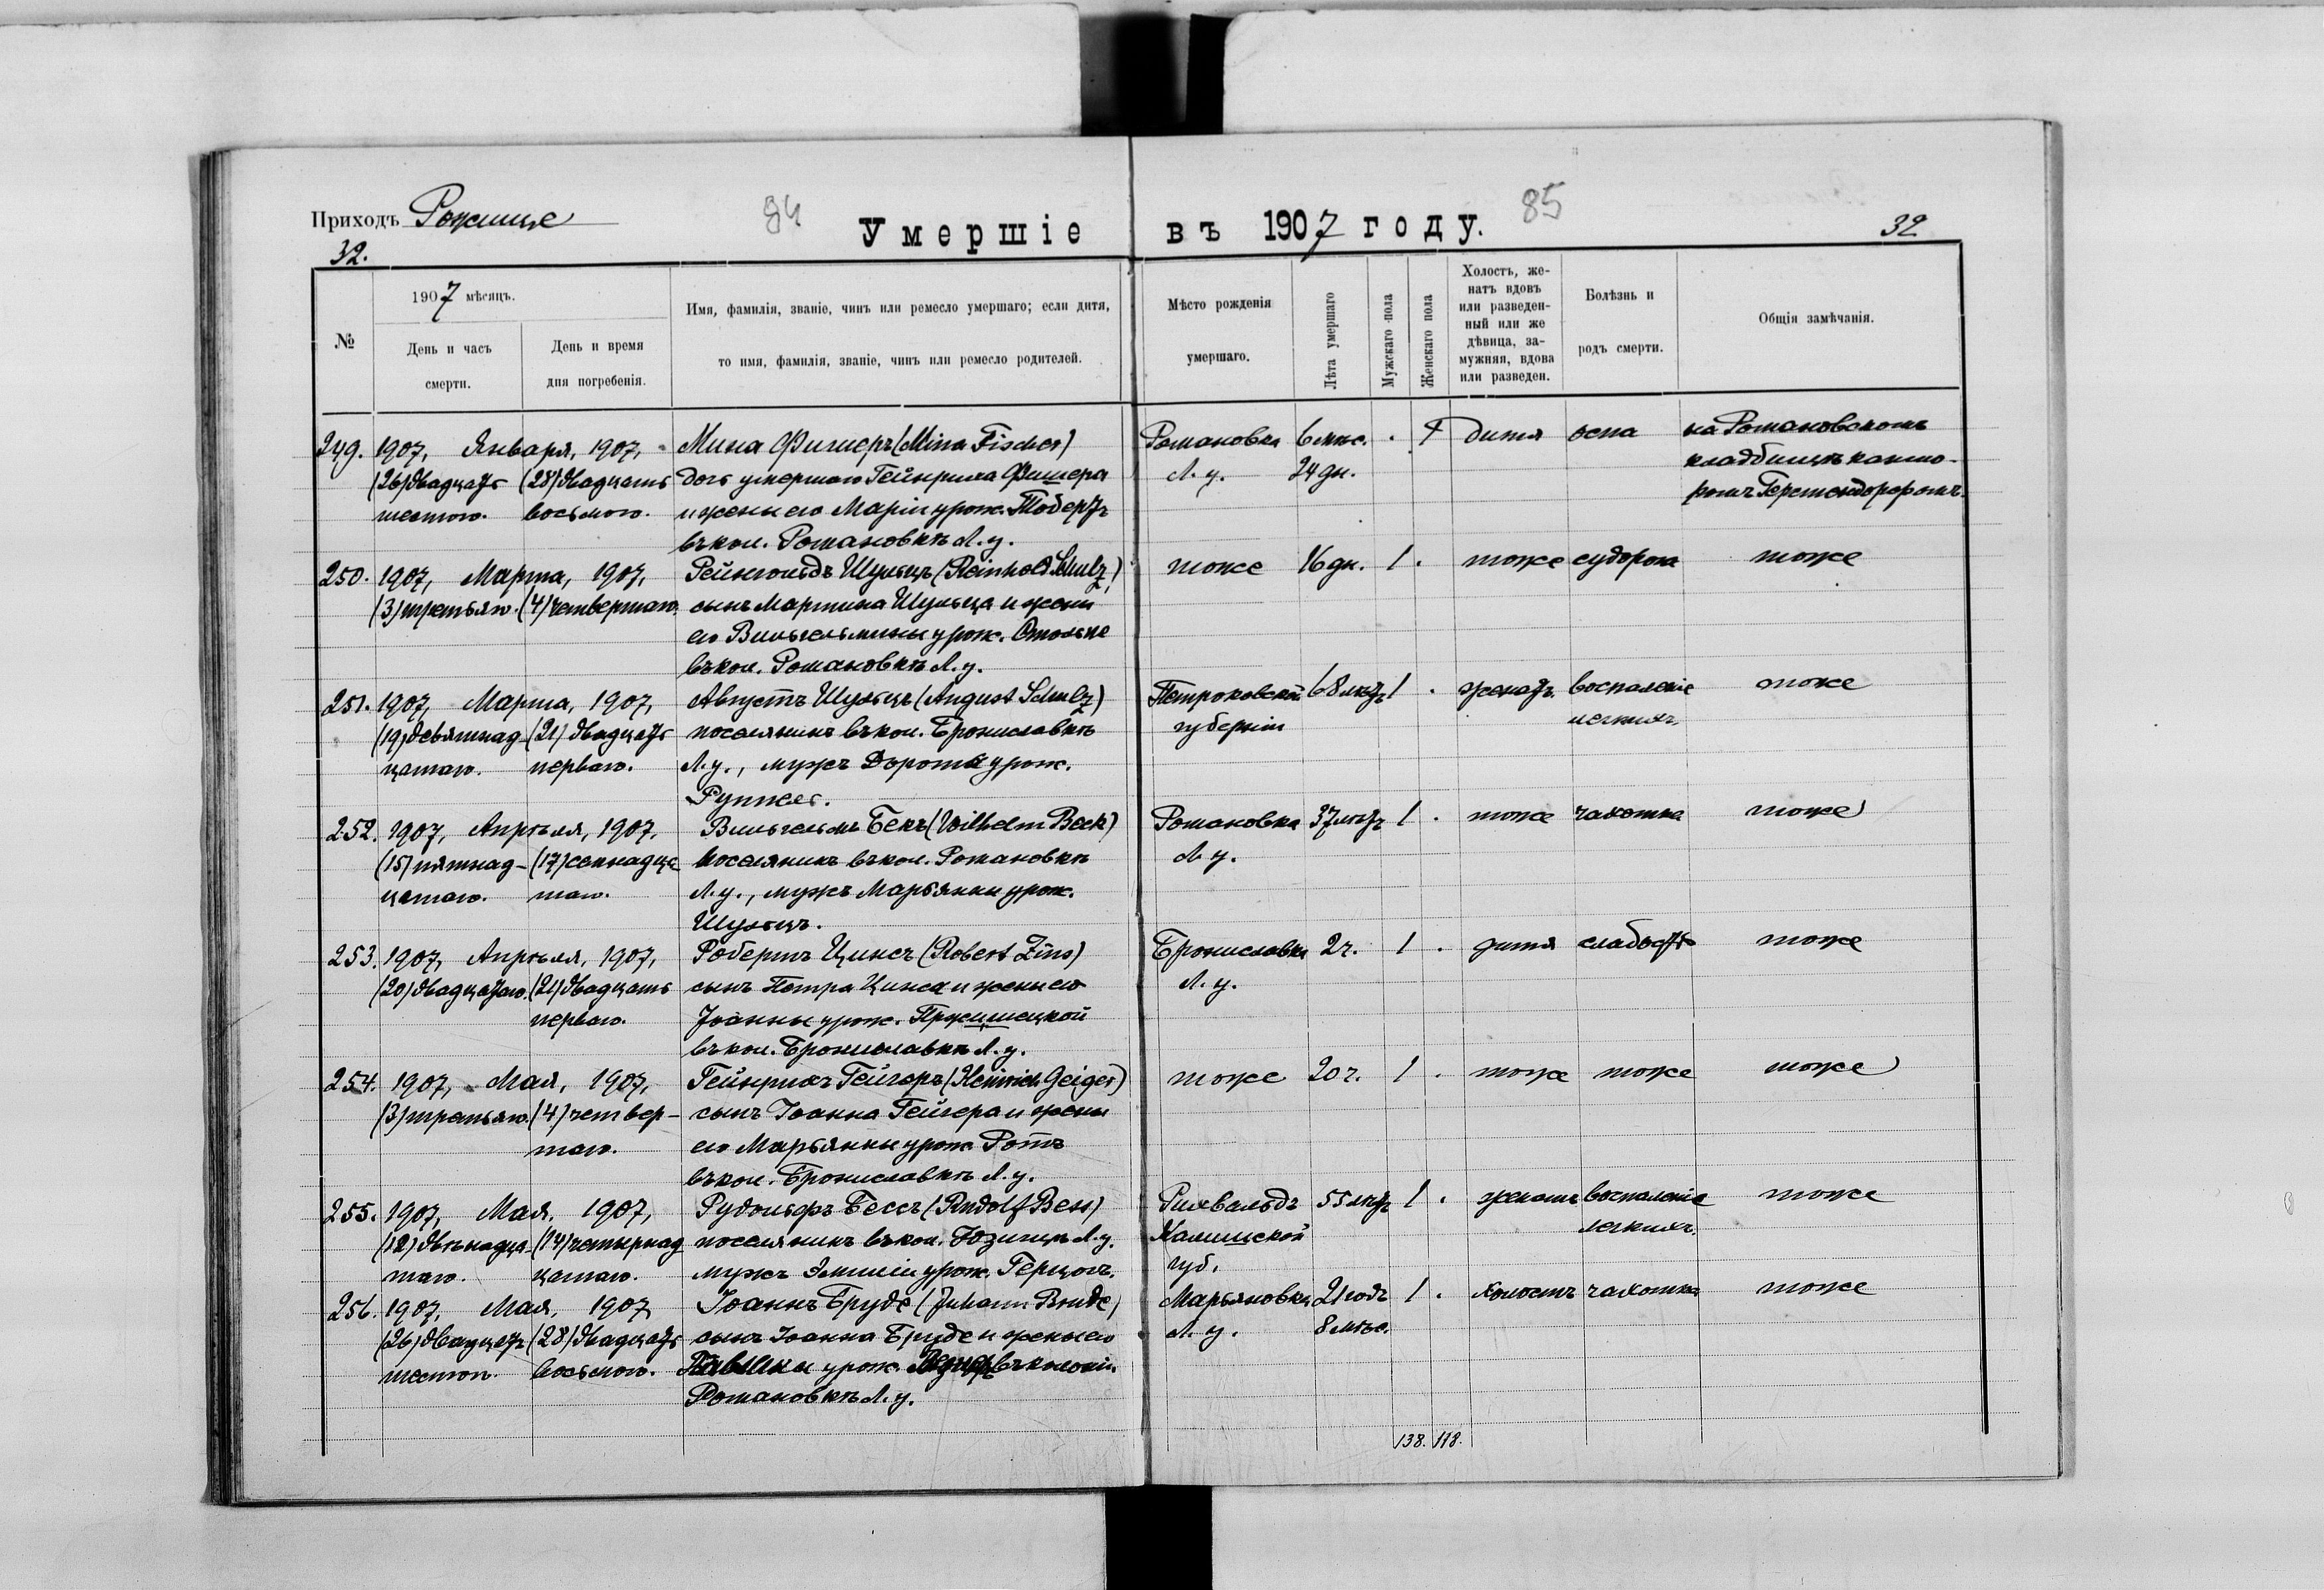 Приходъ Рожище
94
Умершіе въ 1907 году.
85
32.
32
№
1907 мѣсяцъ.
День и часъ смерти.
День и время дня погребенія.
Имя, фамилія, званіе, чинъ или ремесло умершаго; если дитя, то имя, фамилія, званіе, чинъ или ремесло родителей.
Мѣсто рожденія умершаго.
Лѣта умершаго
Мужскаго пола
Женскаго пола
Холостъ, женатъ вдовъ или разведенный или же дѣвица, замужняя, вдова или разведен.
Болѣзнь и родъ смерти.
Общія замѣчанія.
249. 1907, Января, 1907, Мина Фишеръ (Mina Fischer) Романовка 6 мѣс. . 1 дитя оспа на Романовскомъ
(26) двадцать (28) двадцать дочь умершаго Гейнриха Фишера Л. у. 24 дн. кладбищѣ канто-
шестого. восьмого. и жены его Маріи урож. Тобертъ ромъ Герстендорфомъ.
въ кол. Романовкѣ Л. у.
250. 1907, Марта, 1907, Рейнгольдъ Шульцъ (Reinhold Schulz) тоже 16 дн. 1 . тоже судорога тоже
(3) третьяго. (4) четвертаго. сынъ Мартина Шульца и жены
его Вильгельмины урож. Стольпе
въ кол. Романовкѣ Л. у.
251. 1907, Марта, 1907, Августъ Шульцъ (August Schulz) Петроковской 68 лѣтъ 1 . женатъ воспаленіе тоже
(19) девятнад- (21) двадцать поселянинъ въ кол. Брониславкѣ губерніи легкихъ
цатаго. перваго. Л. у., мужъ Доротеи урож.
252. 1907, Апрѣля, 1907, Вильгельмъ Бекъ (Wilhelm Beck) Романовка 37 лѣтъ 1 . тоже чахотка тоже
(15) пятнад- (17) семнадца поселянинъ въ кол. Романовкѣ Л. у.
цатаго. таго. Л. у., мужъ Марьянны урож.
Шульцъ.
253. 1907, Апрѣля, 1907, Робертъ Цинсъ (Robert Zins) Брониславка 2 ч. 1 . дитя слабость тоже
(20) двадцатаго. (21) двадцать сынъ Петра Цинса и жены его Л. у.
перваго. Іоанны урож.
въ кол. Брониславкѣ Л. у.
254. 1907, Мая, 1907, Гейнрихъ Гейгеръ (Heinrich Geiger) тоже 20 ч. 1 . тоже тоже тоже
(3) третьяго. (4) четвер- сынъ Іоанна Гейгера и жены
таго. его Марьянны урож. Ротъ
въ кол. Брониславкѣ Л. у.
255. 1907, Мая, 1907, Рудольфъ Бессъ (Rudolf Bess) Рихвальдъ 55 лѣтъ 1 . женатъ воспаленіе тоже
(12) двѣнадца- (14) четырнад поселянинъ въ кол. Л. у. Калишской легкихъ.
таго. цатаго. мужъ Эмиліи урож. Герцогъ. губ.
256. 1907, Мая, 1907 Іоаннъ Бруде (Johann Brude) Марьяновка 21 годъ 1 . холостъ чахотка тоже
(26) двадцать (28) двадцать сынъ Іоанна Бруде и жены его Л. у. 8 мѣс.
шестого. восьмого. урож. въ колоніи
Романовкѣ Л. у.
138. 118.